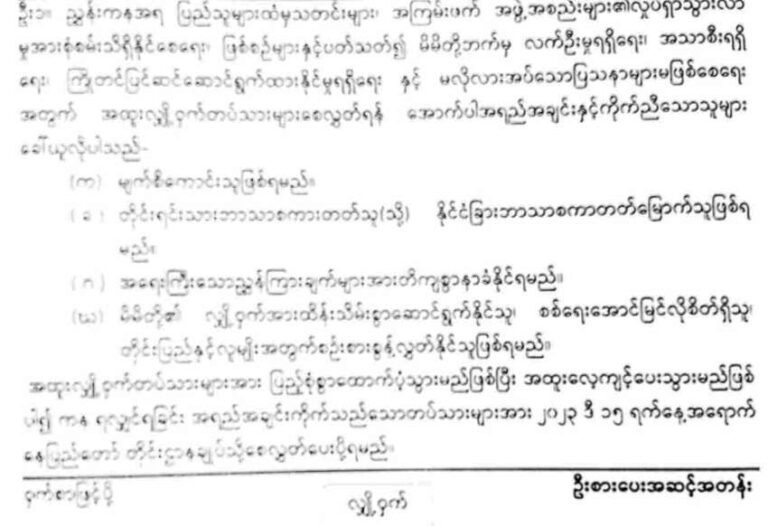 ဦး၁။ ညွှန်းကနအရ ပြည်သူများထံမှသတင်းများ၊ အကြမ်းဖက် အဖွဲ့အစည်းများ၏လှုပ်ရှာသွားလာ
မှုအားစုံစမ်းသိရှိနိုင်စေရေး၊ ဖြစ်စဉ်များနှင့်ပတ်သတ်၍ မိမိတို့ဘက်မှ လက်ဦးမှုရရှိရေး၊ အသာစီးရရှိ
ရေး၊ ကြိုတင်ပြင်ဆင်ဆောင်ရွက်ထားနိုင်မှုရရှိရေး နှင့် မလိုလားအပ်သောပြသနာများမဖြစ်စေရေး
အတွက် အထူးလျှို့ဝှက်တပ်သားများစေလွှတ်ရန် အောက်ပါအရည်အချင်းနှင့်ကိုက်ညီသောသူများ
ခေါ်ယူလိုပါသည်-
(က) မျက်စိကောင်းသူဖြစ်ရမည်။
(ခ) တိုင်းရင်းသားဘာသာစကားတတ်သူ(သို့) နိုင်ငံခြားဘာသာစကာတတ်မြောက်သူဖြစ်ရ
မည်။
(ဂ) အရေးကြီးသောညွှန်ကြားချက်များအားတိကျစွာနာခံနိုင်ရမည်။
(ဃ) မိမိတို့၏ လျှို့ဝှက်အားထိန်းသိမ်းစွာဆောင်ရွက်နိုင်သူ၊ စစ်ရေးအောင်မြင်လိုစိတ်ရှိသူ၊
တိုင်းပြည်နှင့်လူမျိုးအတွက်စဉ်းစားစွန့်လွှတ်နိုင်သူဖြစ်ရမည်။
အထူးလျှို့ဝှက်တပ်သားများအား ပြည့်စုံစွာထောက်ပံ့သွားမည်ဖြစ်ပြီး အထူးလေ့ကျင့်ပေးသွားမည်ဖြစ်
ပါ၍ ကန ရလျှင်ရခြင်း အရည်အချင်းကိုက်သည်သောတပ်သားများအား ၂၀၂၃ ဒီ ၁၅ ရက်နေ့အရောက်
နေပြည်တော် တိုင်းဌာနချုပ်သို့စေလွှတ်ပေးပို့ရမည်။
ဝှက်စာဖြင့်ပို့ ဦးစားပေးအဆင့်အတန်း
လျှို့ဝှက်